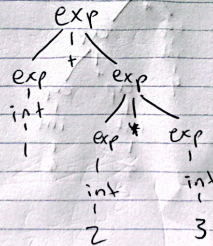 exp
+
exp exp
int
1
exp * exp
int int
2 3